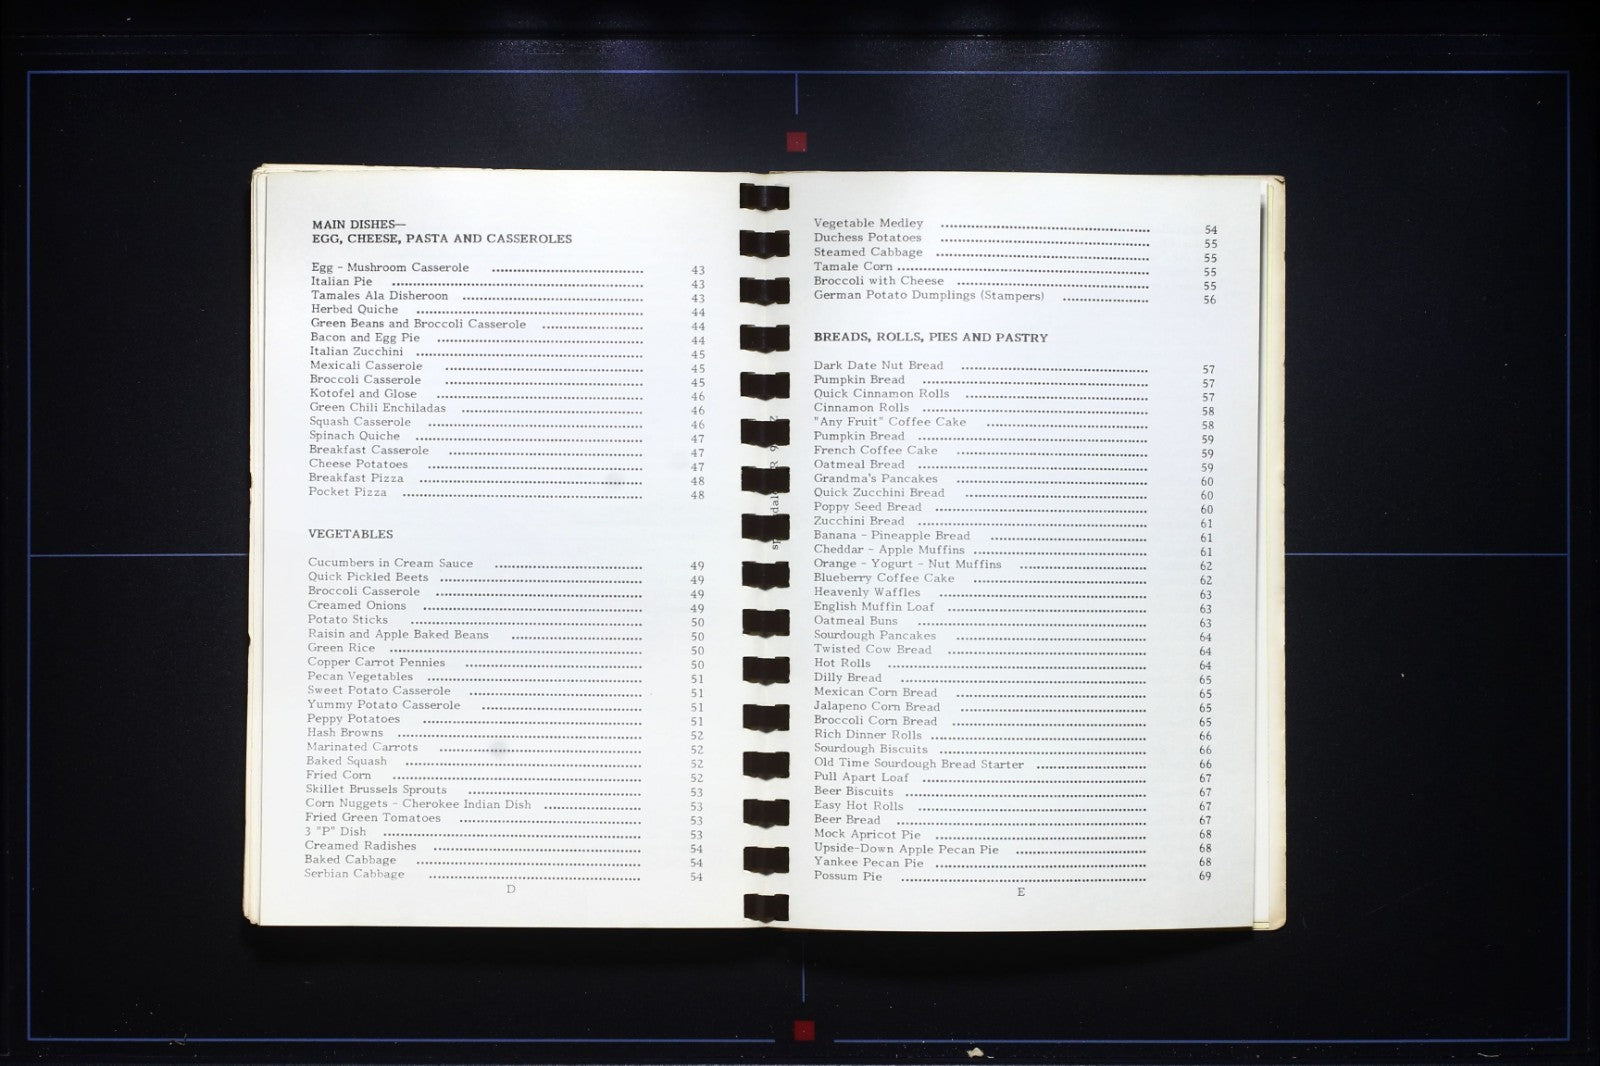 MAIN DISHES—
EGG, CHEESE, PASTA AND CASSEROLES
Egg - Mushroom Casserole 43
Italian Pie 43
Tamales Ala Disheroon 43
Herbed Quiche 44
Green Beans and Broccoli Casserole 44
Bacon and Egg Pie 44
Italian Zucchini 45
Mexicali Casserole 45
Broccoli Casserole 45
Kotofel and Glose 46
Green Chili Enchiladas 46
Squash Casserole 46
Spinach Quiche 47
Breakfast Casserole 47
Cheese Potatoes 47
Breakfast Pizza 48
Pocket Pizza 48
VEGETABLES
Cucumbers in Cream Sauce 49
Quick Pickled Beets 49
Broccoli Casserole 49
Creamed Onions 49
Potato Sticks 50
Raisin and Apple Baked Beans 50
Green Rice 50
Copper Carrot Pennies 50
Pecan Vegetables 51
Sweet Potato Casserole 51
Yummy Potato Casserole 51
Peppy Potatoes 51
Hash Browns 52
Marinated Carrots 52
Baked Squash 52
Fried Corn 52
Skillet Brussels Sprouts 53
Corn Nuggets - Cherokee Indian Dish 53
Fried Green Tomatoes 53
3 "P" Dish 53
Creamed Radishes 54
Baked Cabbage 54
Serbian Cabbage 54
D
Vegetable Medley 54
Duchess Potatoes 55
Steamed Cabbage 55
Tamale Corn 55
Broccoli with Cheese 55
German Potato Dumplings (Stampers) 56
BREADS, ROLLS, PIES AND PASTRY
Dark Date Nut Bread 57
Pumpkin Bread 57
Quick Cinnamon Rolls 57
Cinnamon Rolls 58
"Any Fruit" Coffee Cake 58
Pumpkin Bread 59
French Coffee Cake 59
Oatmeal Bread 59
Grandma's Pancakes 60
Quick Zucchini Bread 60
Poppy Seed Bread 60
Zucchini Bread 61
Banana - Pineapple Bread 61
Cheddar - Apple Muffins 61
Orange - Yogurt - Nut Muffins 62
Blueberry Coffee Cake 62
Heavenly Waffles 63
English Muffin Loaf 63
Oatmeal Buns 63
Sourdough Pancakes 64
Twisted Cow Bread 64
Hot Rolls 64
Dilly Bread 65
Mexican Corn Bread 65
Jalapeno Corn Bread 65
Broccoli Corn Bread 65
Rich Dinner Rolls 66
Sourdough Biscuits 66
Old Time Sourdough Bread Starter 66
Pull Apart Loaf 67
Beer Biscuits 67
Easy Hot Rolls 67
Beer Bread 67
Mock Apricot Pie 68
Upside-Down Apple Pecan Pie 68
Yankee Pecan Pie 68
Possum Pie 69
E